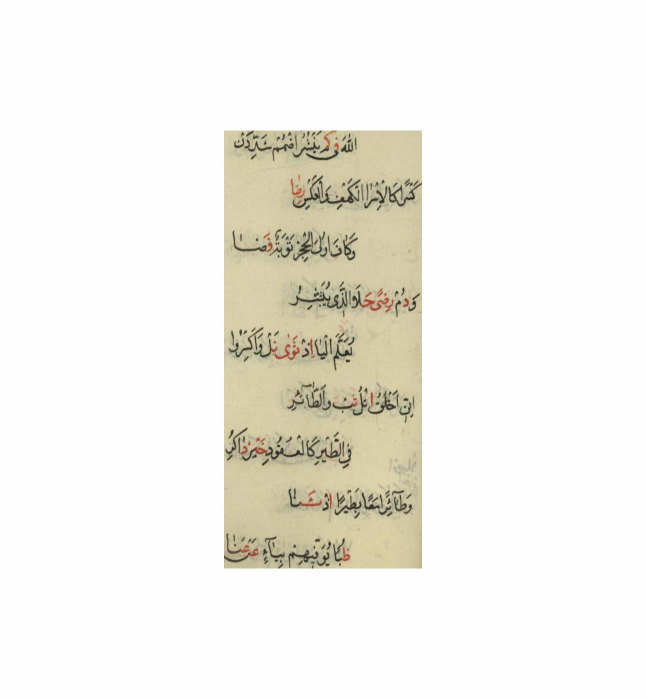 الله في كم يبشر اضمم شددن
كسرا كالاسرا الكهف والعكس رضا
وكاف اولى الحجر توبة فضا
ودم رضى حلا الذي يبشر
يعلم اليا اذ ثوى نل واكسروا
اني اخلق اتل ثب والطائر
في الطير كالعقود خير ذاكر
وطائرا معا بطيرا اذ ثنا
ظبا يوفيهم بياء عن غنا